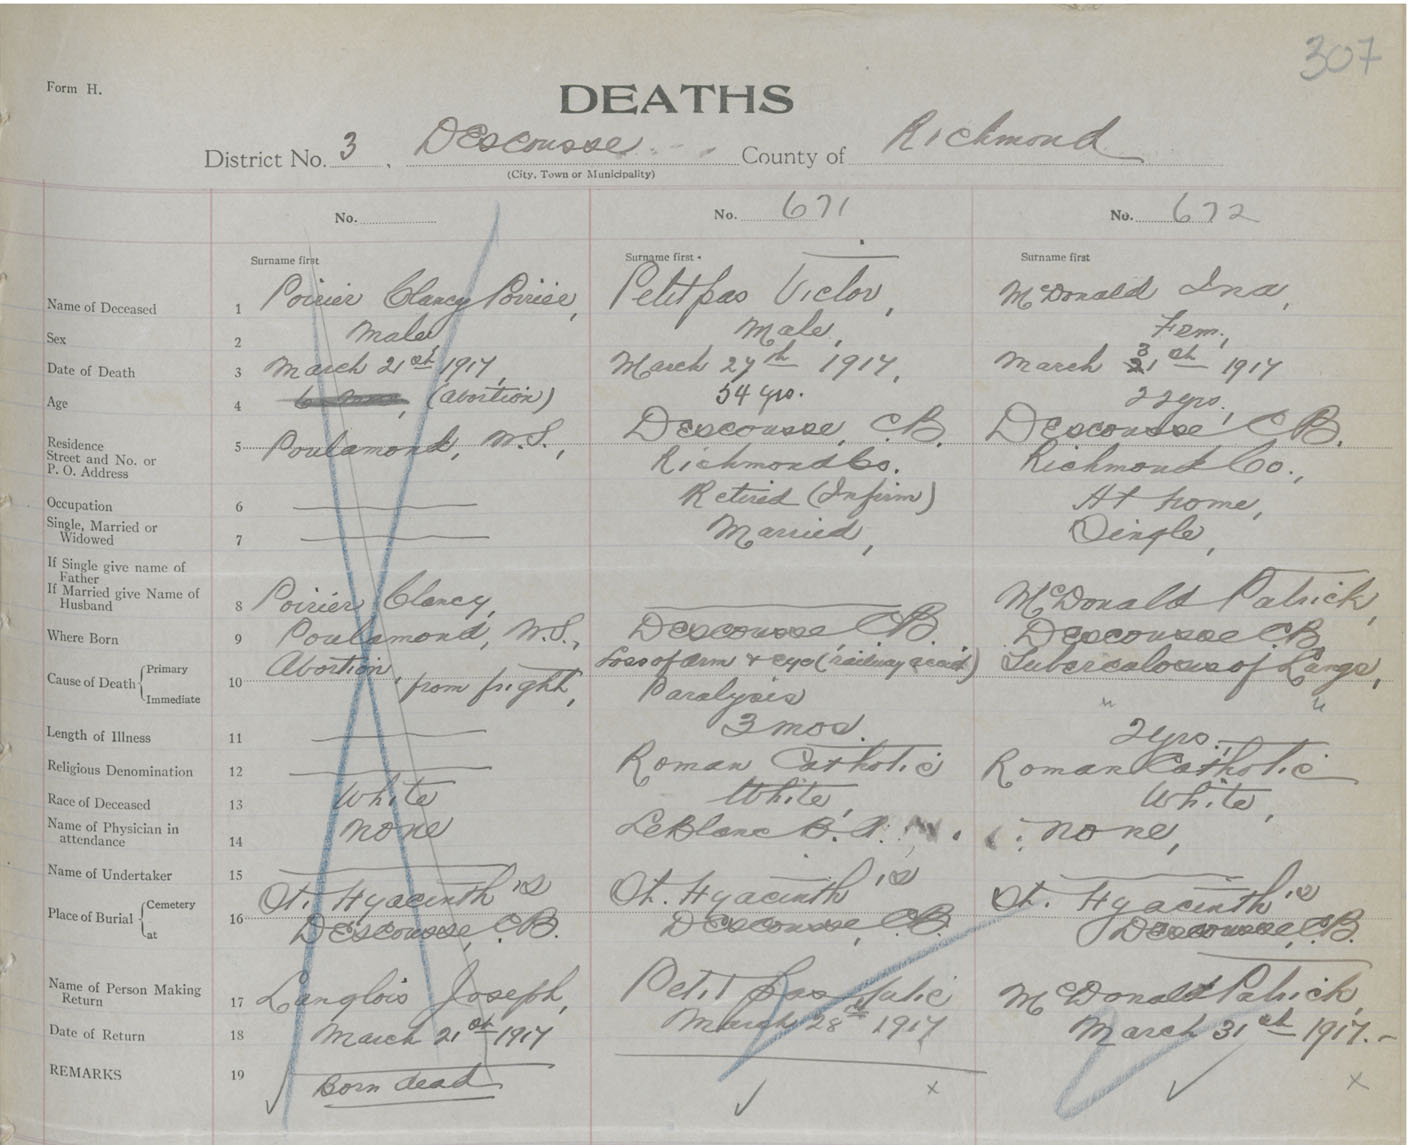 307
Form H.
DEATHS
District No. 3, Descousse County of Richmond
(City, Town or Municipality)
No. No. 671 No. 672
Surname first Surname first Surname first
Name of Deceased 1 Poirier Clancy Poirier, Petitpas Victor, McDonald Ina,
Sex 2 Male Male, Fem,
Date of Death 3 March 21st 1917, March 27th 1917, March 31st 1917
Age 4 (Abortion) 54 yrs. 22 yrs,
Residence 5 Poulamond, N.S., Descousse, C.B. Descousse C.B.
Street and No. or
P. O. Address Richmond Co. Richmond Co.,
Occupation 6 Retired (Infirm) At home,
Single, Married or
Widowed 7 Married, Single,
If Single give name of
Father
If Married give Name of
Husband 8 Poirier Clancy, McDonald Patrick,
Where Born 9 Poulamond, N.S., Descousse C.B. Descousse C.B.
Cause of Death { Primary 10 Abortion, Loss of Arm & eye (railway accid.) Tuberculosis of Lungs,
Immediate from fright, Paralysis " "
Length of Illness 11 3 mos. 2 yrs.,
Religious Denomination 12 Roman Catholic Roman Catholic
Race of Deceased 13 White White, White,
Name of Physician in
attendance 14 none LeBlanc B. none,
Name of Undertaker 15
Place of Burial { Cemetery 16 St. Hyacinth's St. Hyacinth's St. Hyacinth's
at Descousse, C.B. Descousse, C.B. Descousse, C.B.
Name of Person Making
Return 17 Langlois Joseph, Petitpas Julie McDonald Patrick,
Date of Return 18 March 21st 1917 March 28th 1917 March 31st 1917.-
REMARKS 19 Born dead